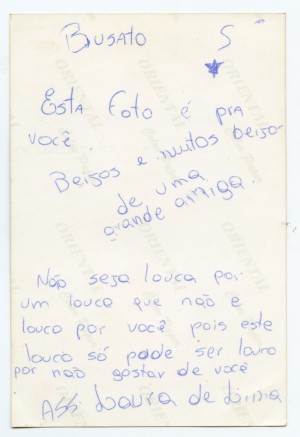 Busato S
Esta foto é pra
você.
Beizos e muitos beizo
de uma
grande amiga.
Não seza louca por
um louco que não e
louco por você pois este
louco só pode ser louro
por não gostar de você
Ass Laura de Lima
ORIENTAL
ORIENTAL
ORIENTAL
ORIENTAL